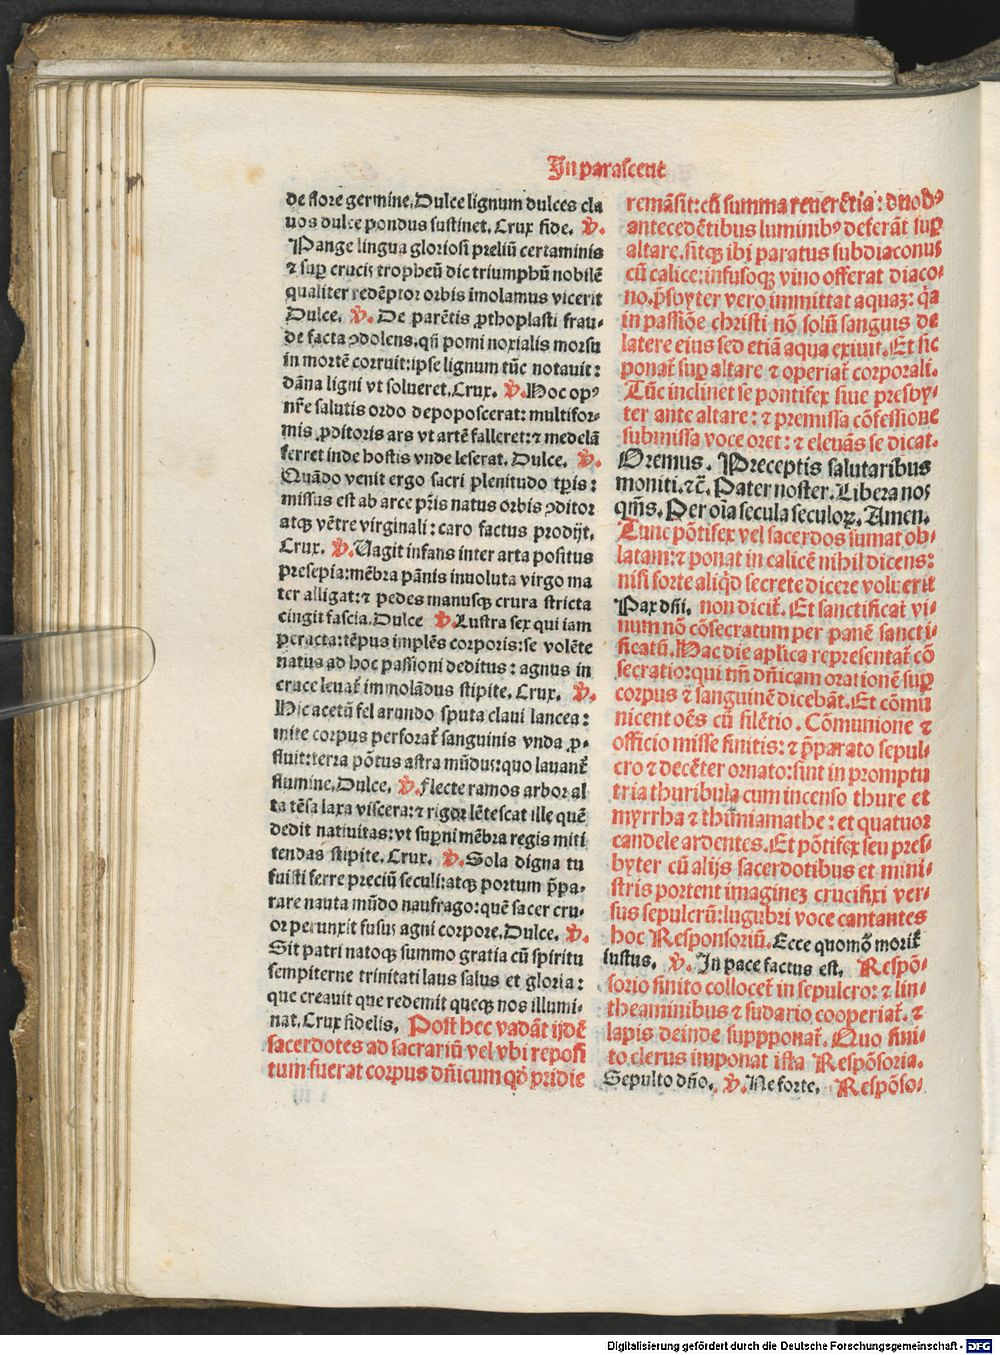 In parasceue
de flore germine. Dulce lignum dulces cla
uos dulce pondus sustinet. Crux fide. ℣.
Pange lingua gloriosi preliū certaminis
⁊ suꝑ crucis tropheū dic triumphū nobilē
qualiter redēptor orbis īmolamus vicerit
Dulce. ℣. De parētis ꝓthoplasti frau⸗
de facta ↄdolens. qn̄ pomi noxialis morsu
in mortē corruit: ipse lignum tūc notauit:
dāna ligni vt solueret. Crux. ℣. Hoc opꝰ
nr̄e salutis ordo depoposcerat: multifor⸗
mis ꝓditoris ars vt artē falleret: ⁊ medelā
ferret inde hostis vnde leserat. Dulce. ℣.
Quādo venit ergo sacri plenitudo tp̄is:
missus est ab arce pr̄is natus orbis ↄditor
atqꝫ vētre virginali: caro factus prodijt.
Crux. ℣. Uagit infans inter arta positus
presepia: mēbra pānis inuoluta virgo ma
ter alligat: ⁊ pedes manusqꝫ crura stricta
cingit fascia. Dulce ℣. Lustra sex qui iam
peracta: tēpus implēs corporis: se volēte
natus ad hoc passioni deditus: agnus in
cruce leuat᷑ immolādus stipite. Crux. ℣.
Hic acetū fel arundo sputa claui lancea:
mite corpus perforat᷑ sanguinis vnda ꝓ⸗
fluit: terra pōtus astra mūdus: quo lauant᷑
flumine. Dulce. ℣. Flecte ramos arbor al
ta tēsa laxa viscera: ⁊ rigor lētescat ille quē
dedit natiuitas: vt suꝑni mēbra regis miti
tendas stipite. Crux. ℣. Sola digna tu
fuisti ferre preciū seculi: atqꝫ portum p̄pa⸗
rare nauta mūdo naufrago: quē sacer cru⸗
or perunxit fusus agni corpore. Dulce. ℣.
Sit patri natoqꝫ summo gratia cū spiritu
sempiterne trinitati laus salus et gloria:
que creauit que redemit queqꝫ nos illumi⸗
nat. Crux fidelis. Post hec vadāt ijdē
sacerdotes ad sacrariū vel vbi reposi
tum fuerat corpus dn̄icum qd̄ pridie
remāsit: cū summa reuerētia: duobꝰ
antecedētibus luminibꝰ deferāt suꝑ
altare. sitqꝫ ibi paratus subdiaconus
cū calice: infusoqꝫ vino offerat diaco⸗
no. p̄sbyter vero immittat aquaꝫ: qͣa
in passiōe christi nō solū sanguis de
latere eius sed etiā aqua exiuit. Et sic
ponat᷑ suꝑ altare ⁊ operiat᷑ corporali.
Tūc inclinet se pontifex siue presby⸗
ter ante altare: ⁊ premissa cōfessione
submissa voce oret: ⁊ eleuās se dicat.
Oremus. Preceptis salutaribus
moniti. ⁊c̄. Pater noster. Libera nos
qm̄s. Per oīa secula seculoꝝ. Amen.
Tunc pōtifex vel sacerdos sumat ob⸗
latam: ⁊ ponat in calicē nihil dicens:
nisi forte aliqͥd secrete dicere voluerit
Pax dn̄i. non dicit᷑. Et sanctificat᷑ vi⸗
num nō cōsecratum per panē sancti⸗
ficatū. Hac die aplica representat᷑ cō
secratio: qui tm̄ dn̄icam orationē suꝑ
corpus ⁊ sanguinē dicebāt. Et cōmu
nicent oēs cū silētio. Cōmunione ⁊
officio misse finitis: ⁊ p̄parato sepul⸗
cro ⁊ decēter ornato: sint in promptu
tria thuribula cum incenso thure et
myrrha ⁊ thimiamathe: et quatuor
candele ardentes. Et pōtifex seu pres⸗
byter cū alijs sacerdotibus et mini⸗
stris portent imagineꝫ crucifixi ver⸗
sus sepulcrū: lugubri voce cantantes
hoc Responsoriū. Ecce quomō morit᷑
iustus. ℣. In pace factus est. Respō⸗
sorio finito collocet᷑ in sepulcro: ⁊ lin⸗
theaminibus ⁊ sudario cooperiat᷑. ⁊
lapis deinde suppponat᷑. Quo fini⸗
to clerus imponat ista Respōsoria.
Sepulto dn̄o. ℣. Ne forte. Respōso⸗
Digitalisierung gefördert durch die Deutsche Forschungsgemeinschaft - DFG